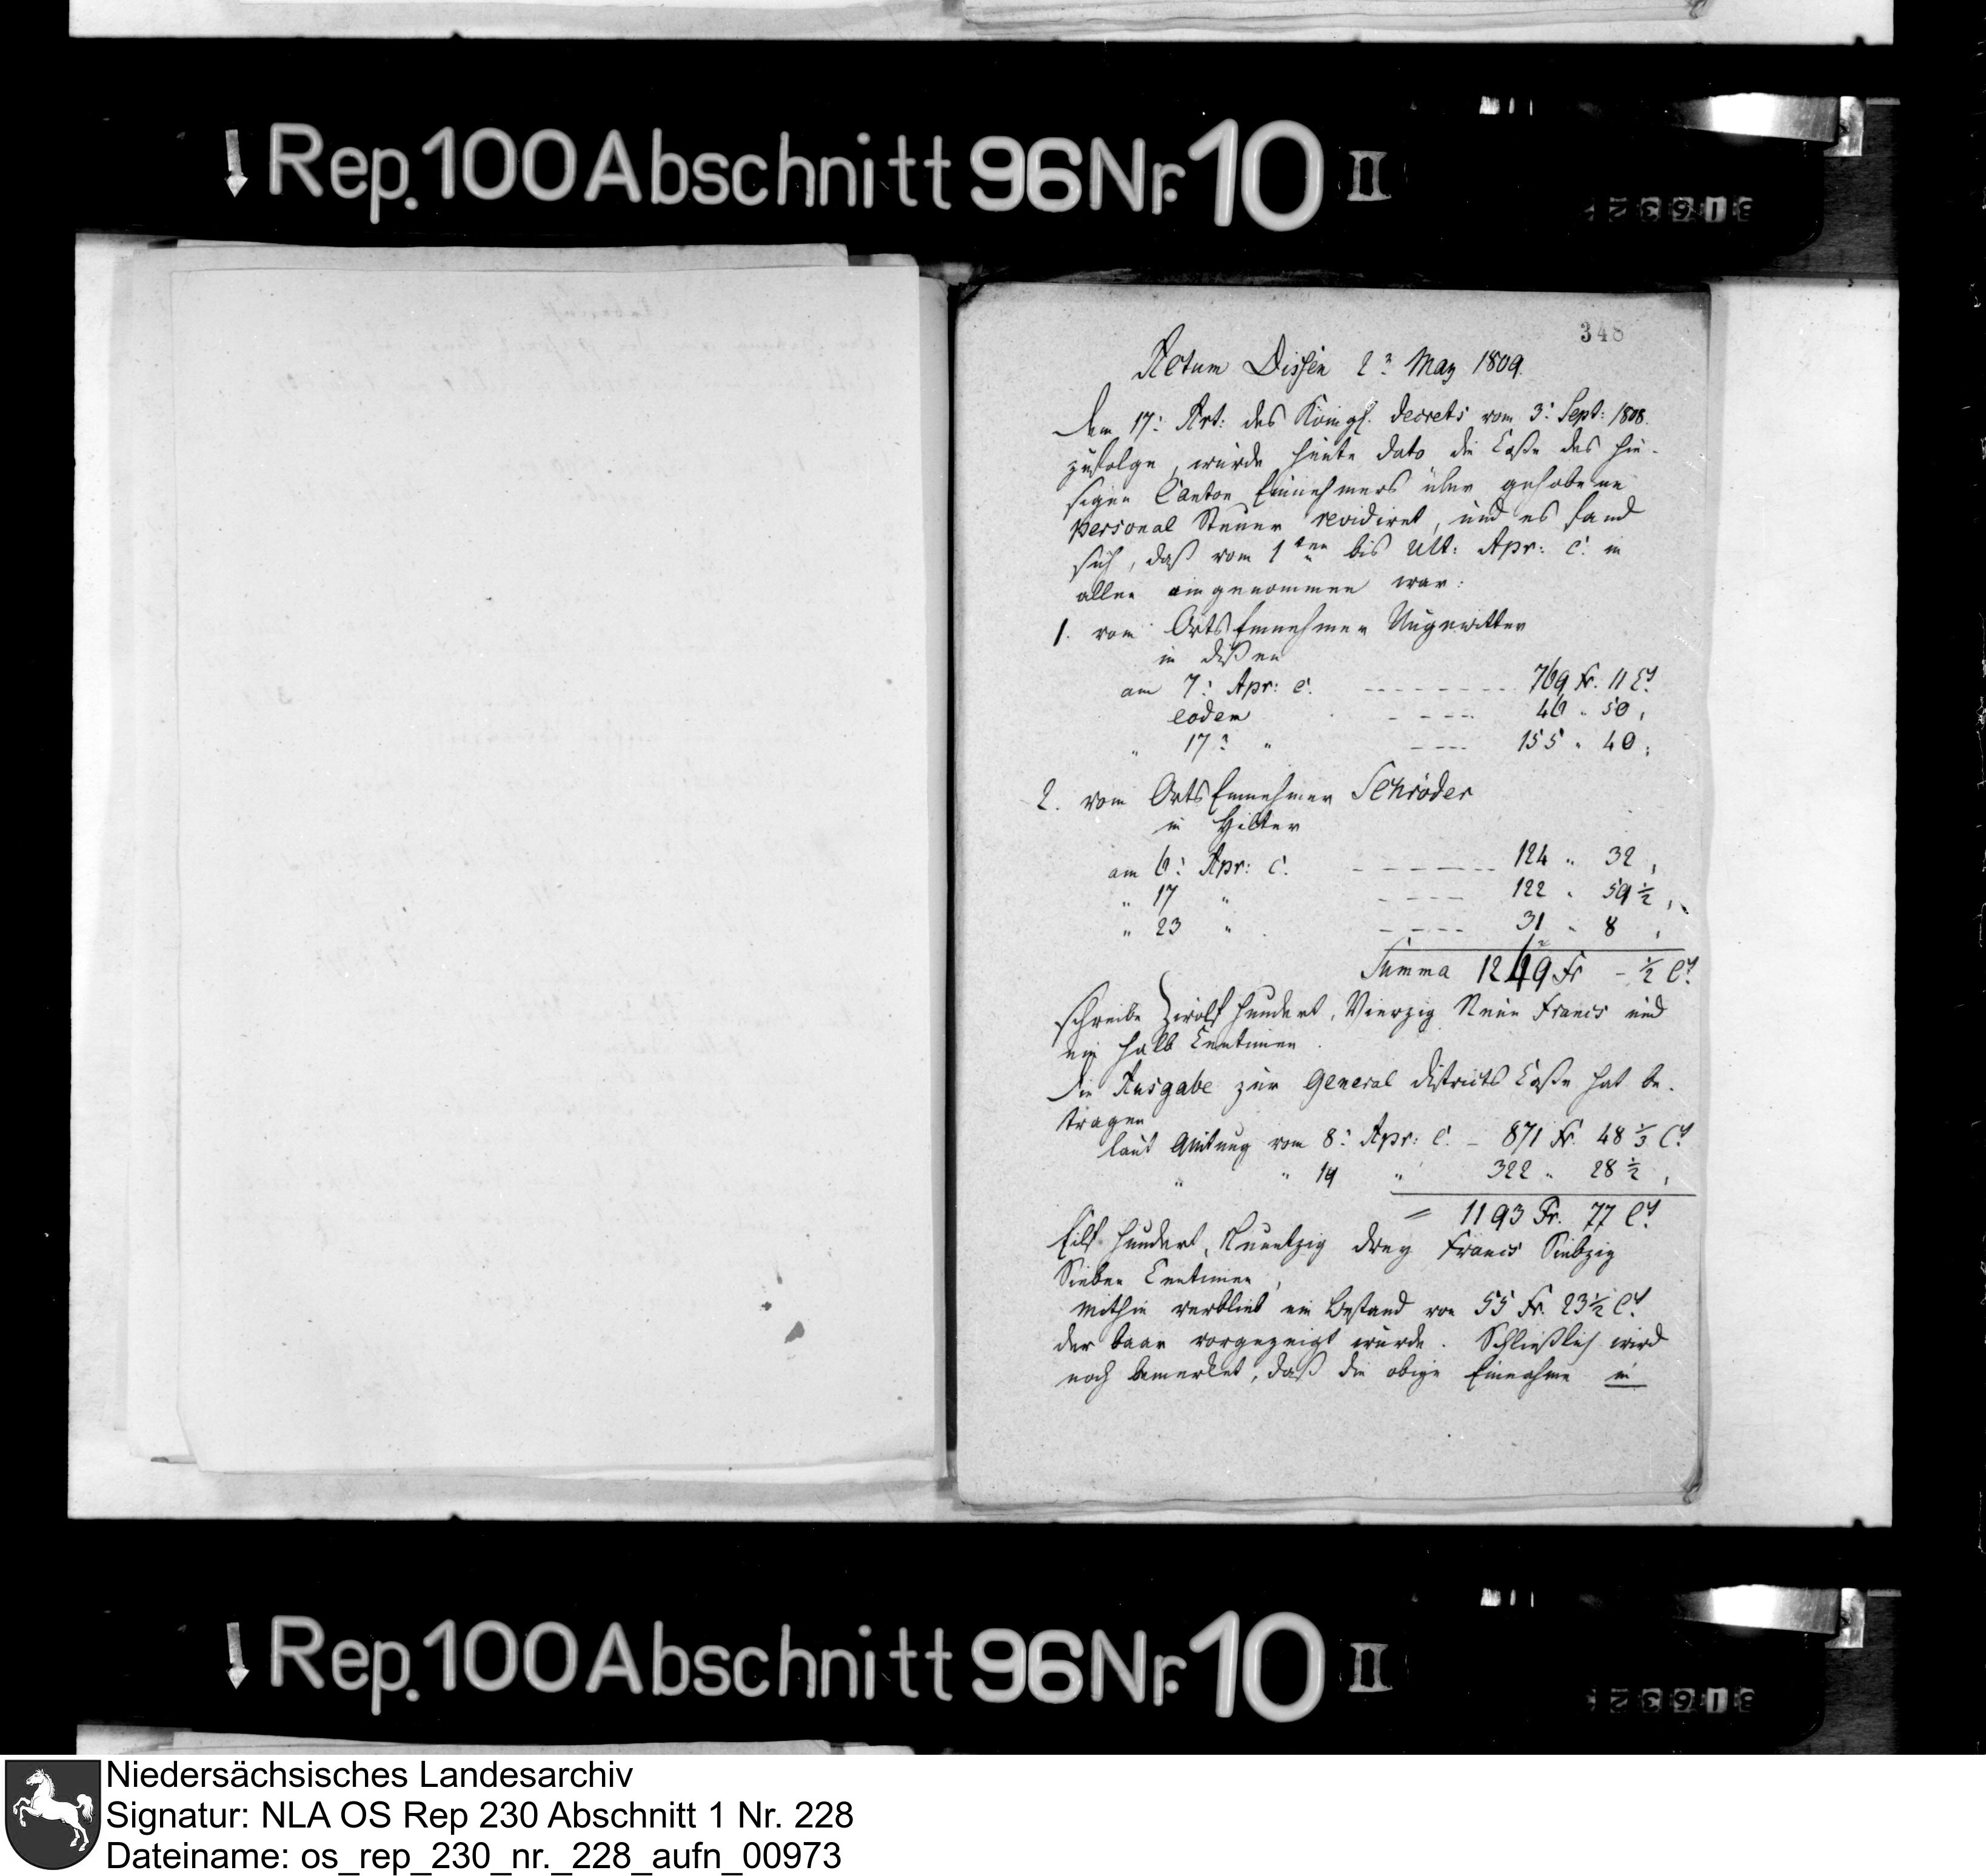 Rep. 100 Abschnitt 96 Nr. 10 II
348
Actum Dissen 2t May 1809.
Dem 17t Art: des Königl. Decrets vom 3t Sept: 1808.
zufolge, wurde heute dato die Casse des hie-
sigen Canton Einnehmers über gehobene
Personal Steuer revidiret, und es fand
sich, daß vom 1ten bis Ult: Apr: c. in
allen eingenommen war:
1. vom Orts Einnehmer Ungewitter
in Dißen
am 7t Apr: c. --------- 769 Fr. 11 Ct.
eodem ---- 46 " 50,
" 17t " ---- 155 " 40,
2. vom Orts Einnehmer Schröder
in Hilter
am 6t Apr: c. --------- 124 " 32,
" 17 " ---- 122 " 59½,
" 23 " ---- 31 " 8,
Summa 1249 Fr - ½ Ct.
schreibe Zwölf hundert, Vierzig Neun Francs und
ein halb Centimen.
Die Ausgabe zur General Districts Casse hat be-
tragen
laut Quitung vom 8t Apr: c. - 871 Fr. 48½ Ct.
" " 19 " 322 " 28½,
= 1193 Fr. 77 Ct.
Eilf hundert, Neuntzig drey Francs Siebzig
Sieben Centimen,
mithin verblieb ein Bestand von 55 Fr. 23½ Ct.
der baar vorgezeigt wurde. Schließlich wird
noch bemerket, daß die obige Einnahme in
Rep. 100 Abschnitt 96 Nr. 10 II
Niedersächsisches Landesarchiv
Signatur: NLA OS Rep 230 Abschnitt 1 Nr. 228
Dateiname: os_rep_230_nr._228_aufn_00973